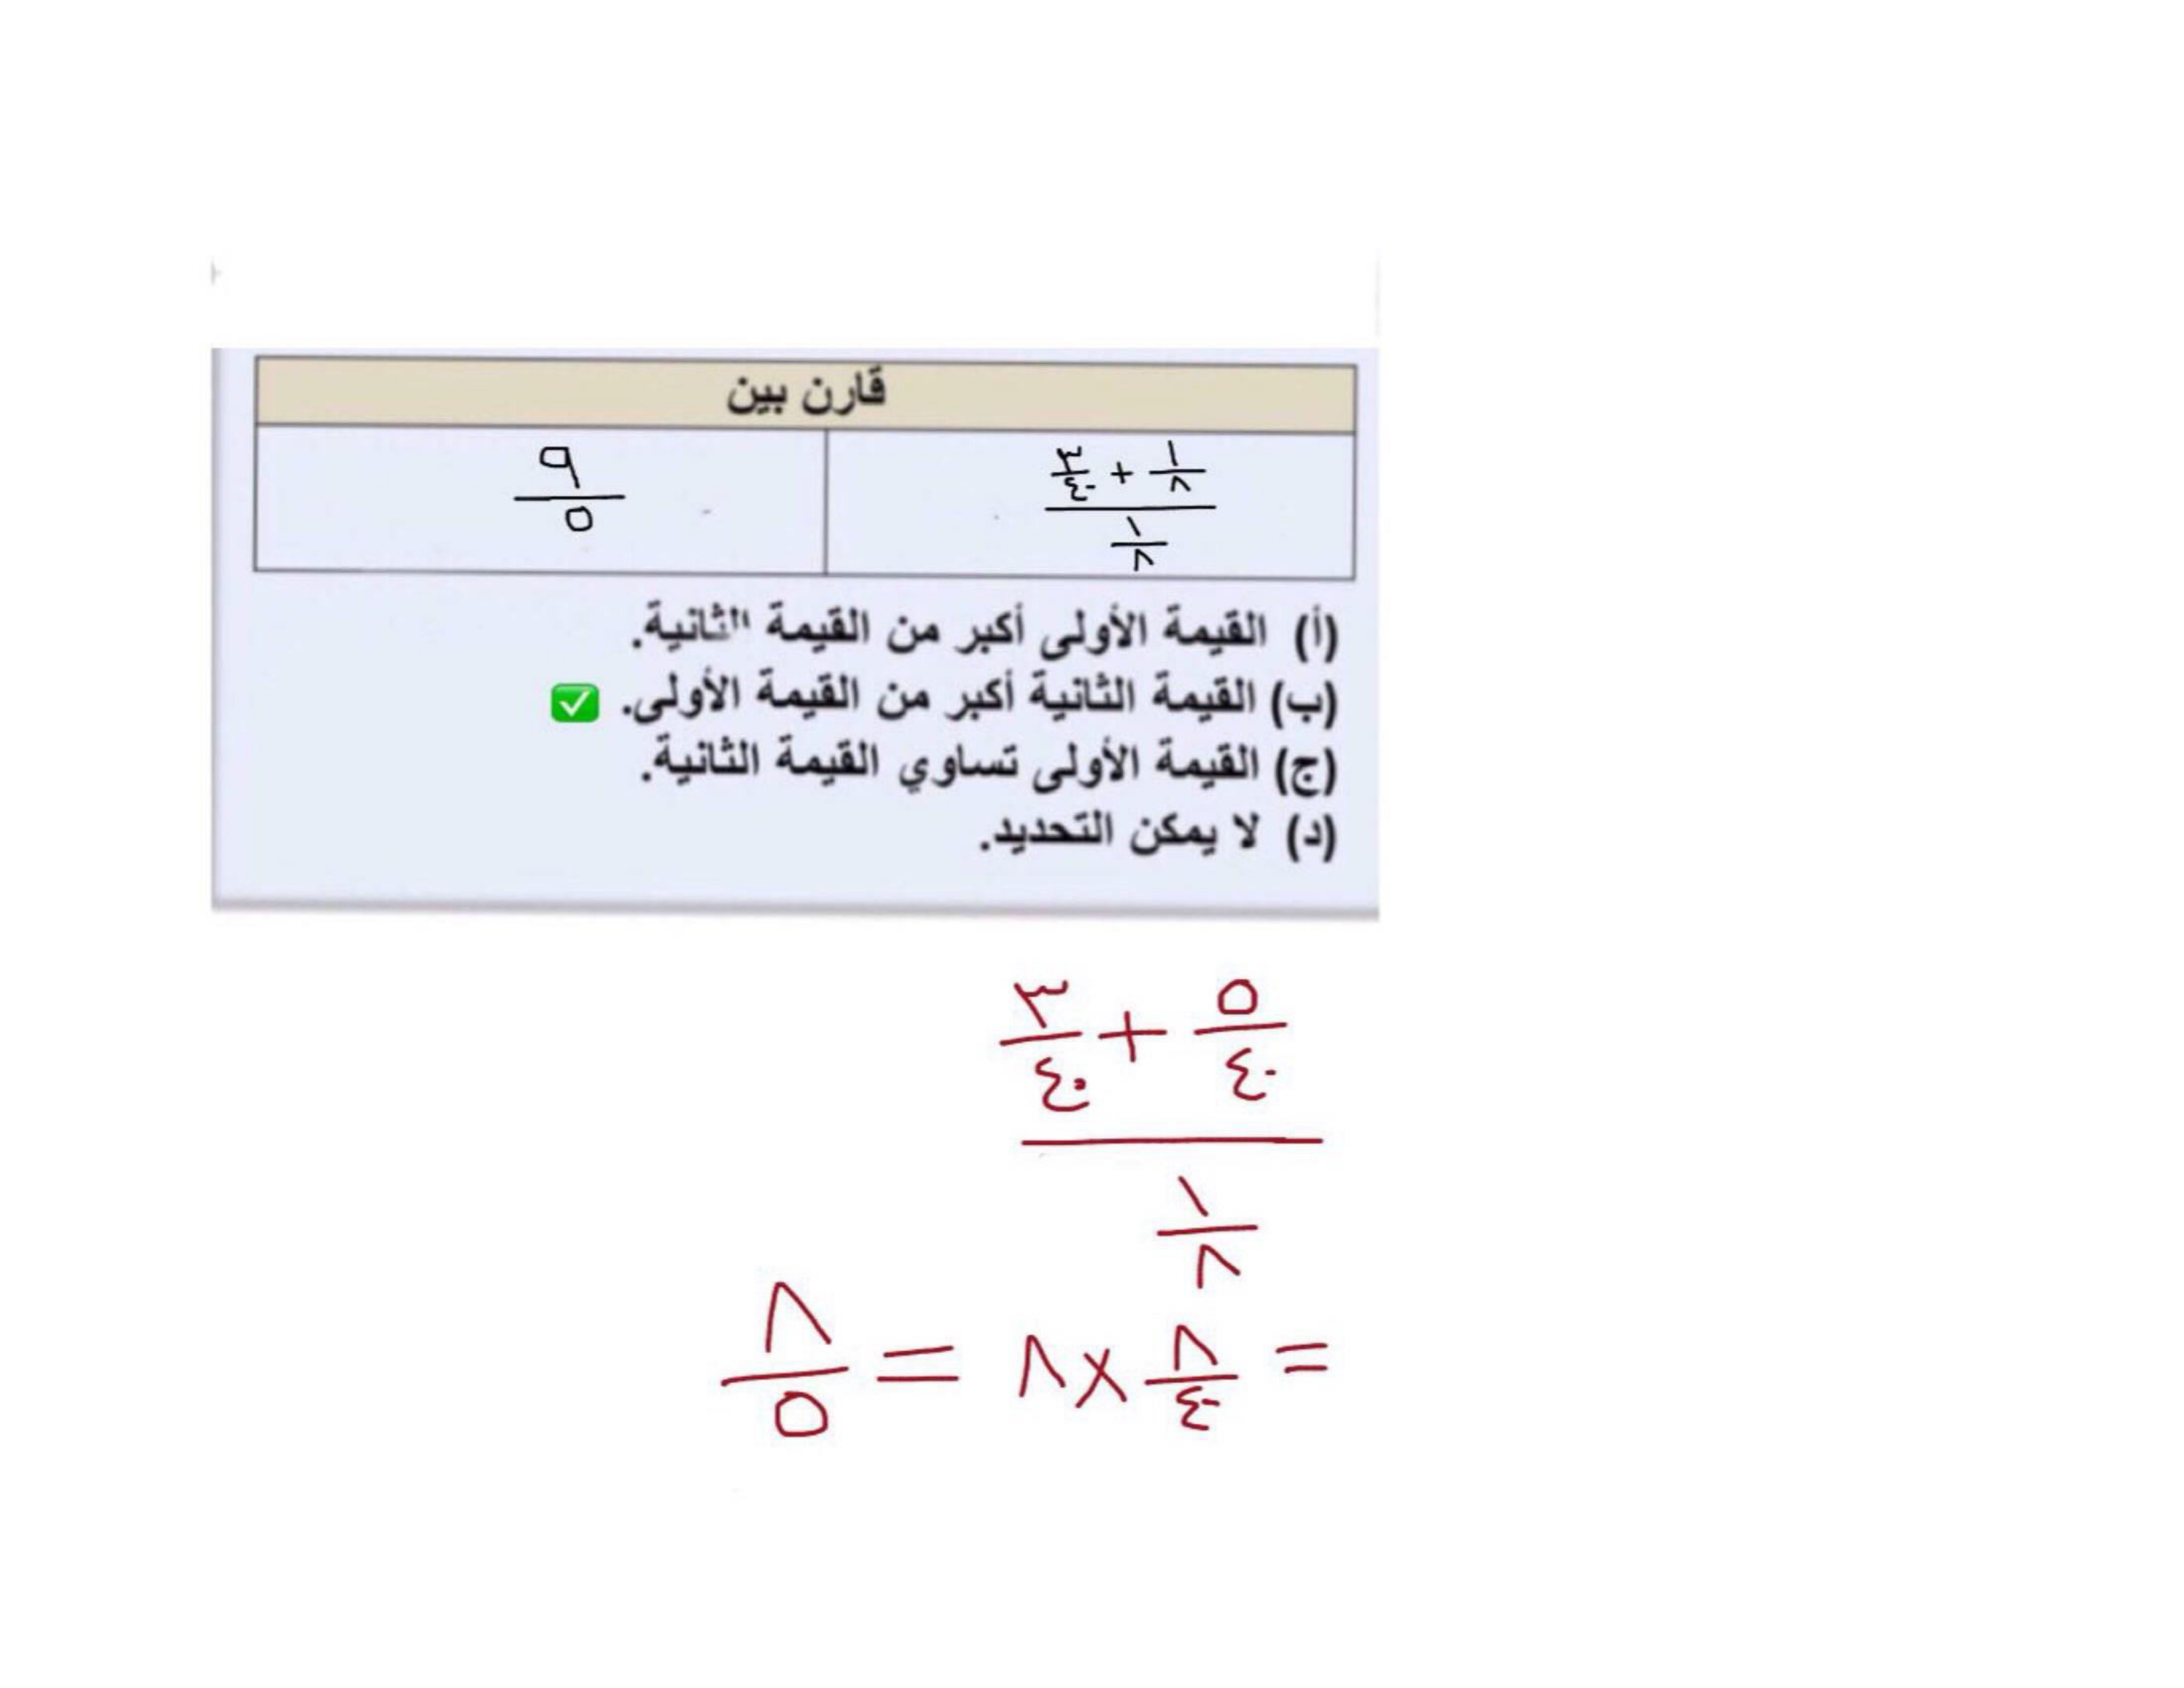 قارن بين
١/٨ + ٣/٤
١/٨
٩/٥
(أ) القيمة الأولى أكبر من القيمة الثانية.
(ب) القيمة الثانية أكبر من القيمة الأولى. ✅
(ج) القيمة الأولى تساوي القيمة الثانية.
(د) لا يمكن التحديد.
٥/٤ + ٣/٤
١/٨
= ٨/٤ × ٨ = ٨/٥